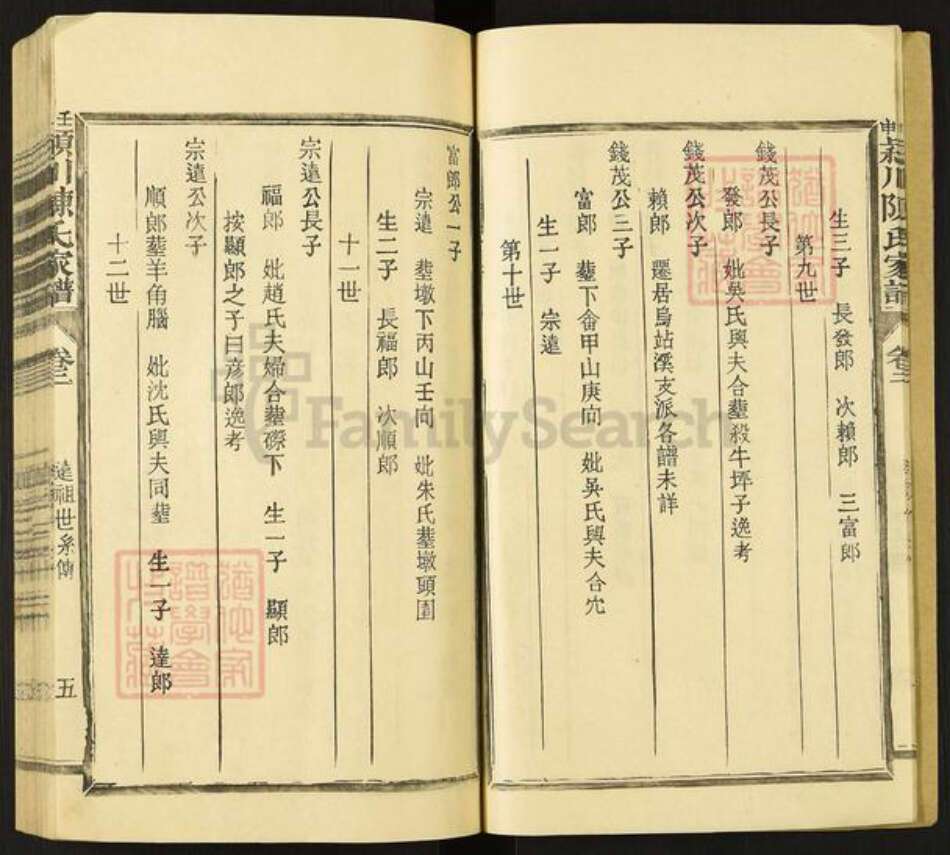 潁川陳氏家譜 卷二
生三子 長發郎 次賴郎 三富郎
第九世
錢茂公長子
發郎 妣吳氏與夫合𦵏殺牛坪子逸考
錢茂公次子
賴郎 遷居烏站溪支派各譜未詳
錢茂公三子
富郎 𦵏下畲甲山庚向 妣吳氏與夫合穴
生一子 宗遠
第十世
富郎公一子
宗遠 𦵏墩下丙山壬向 妣朱氏𦵏墩頭園
生二子 長福郎 次順郎
十一世
宗遠公長子
福郎 妣趙氏夫婦合𦵏磜下 生一子 顯郎
按顯郎之子曰彥郎逸考
宗遠公次子
順郎𦵏羊角腦 妣沈氏與夫同𦵏 生一子 達郎
十二世
潁川陳氏家譜 卷二 遠祖世系傳 五
FamilySearch